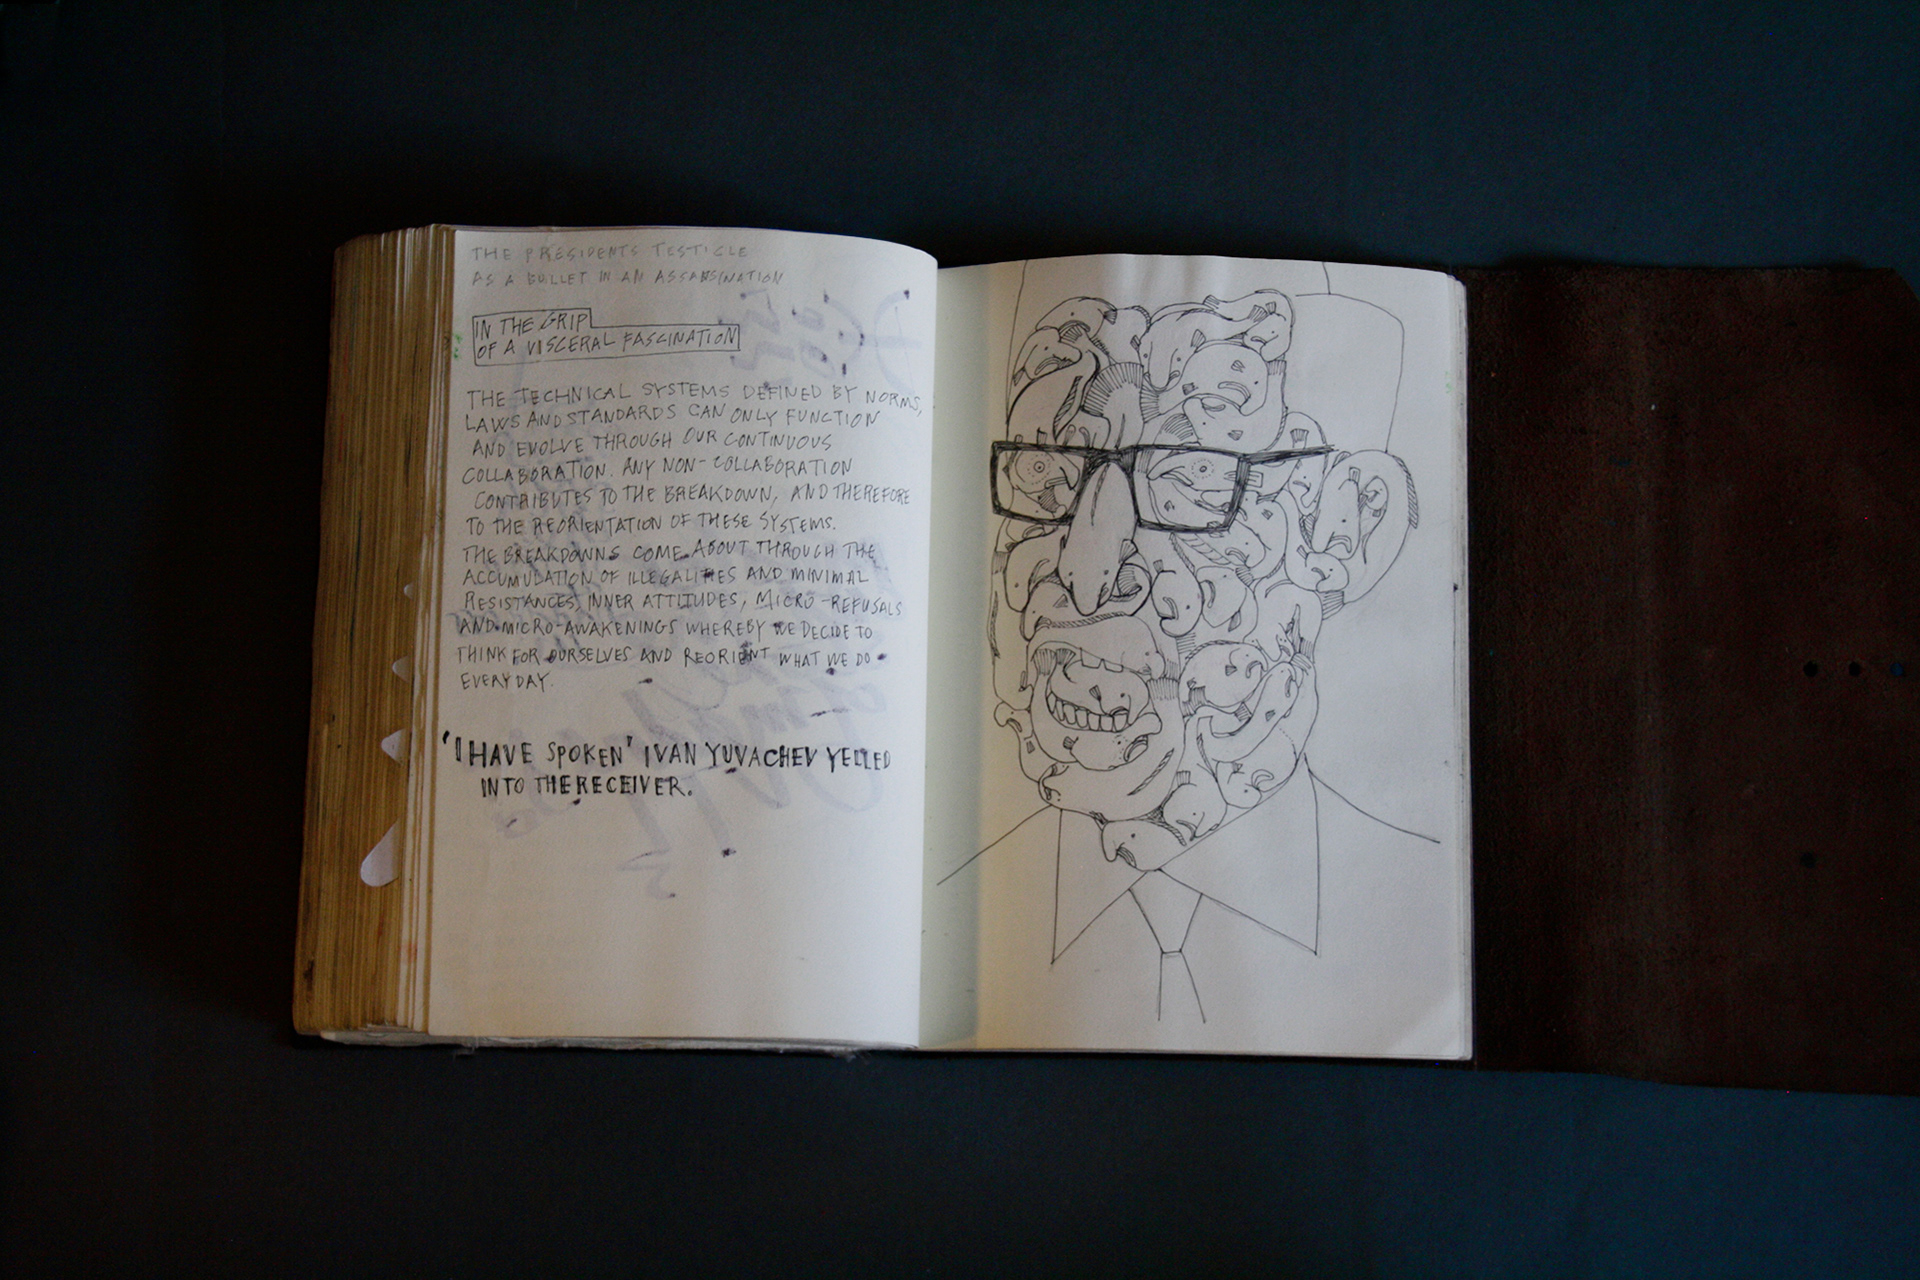 THE PRESIDENTS TESTICLE
AS A BULLET IN AN ASSASSINATION
IN THE GRIP
OF A VISCERAL FASCINATION
THE TECHNICAL SYSTEMS DEFINED BY NORMS,
LAWS AND STANDARDS CAN ONLY FUNCTION
AND EVOLVE THROUGH OUR CONTINUOUS
COLLABORATION. ANY NON-COLLABORATION
CONTRIBUTES TO THE BREAKDOWN, AND THEREFORE
TO THE REORIENTATION OF THESE SYSTEMS.
THE BREAKDOWNS COME ABOUT THROUGH THE
ACCUMULATION OF ILLEGALITIES AND MINIMAL
RESISTANCES, INNER ATTITUDES, MICRO-REFUSALS
AND MICRO-AWAKENINGS WHEREBY WE DECIDE TO
THINK FOR OURSELVES AND REORIENT WHAT WE DO
EVERYDAY.
'I HAVE SPOKEN' IVAN YUVACHEV YELLED
INTO THE RECEIVER.